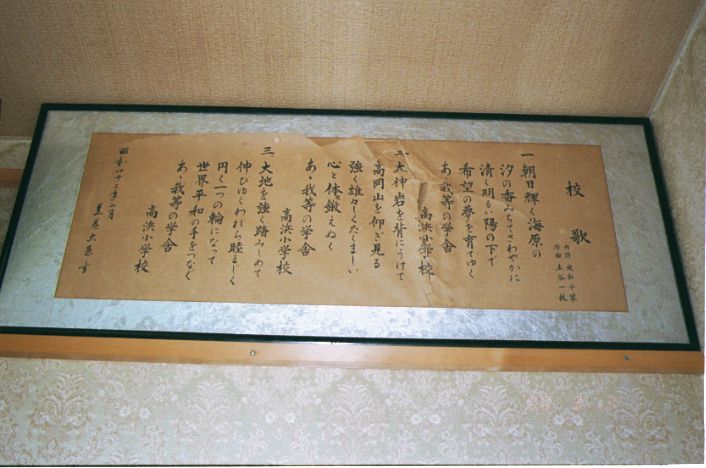 校歌
作詩 成松千草
作曲 土谷一枝
一 朝日輝く海原の
汐の香みちてさわやかに
清く明るい陽の下て
希望の夢を育てゆく
あゝ我等の学舎
高浜小学校
二 大神岩を背にうけて
高岡山を仰ぎ見る
強く雄々しくたくましい
心と体を鍛えぬく
あゝ我等の学舎
高浜小学校
三 大地を強く踏みしめて
伸びゆくわれら睦ましく
円く一つの輪になって
世界平和の手をつなぐ
あゝ我等の学舎
高浜小学校
昭和四十三年二月